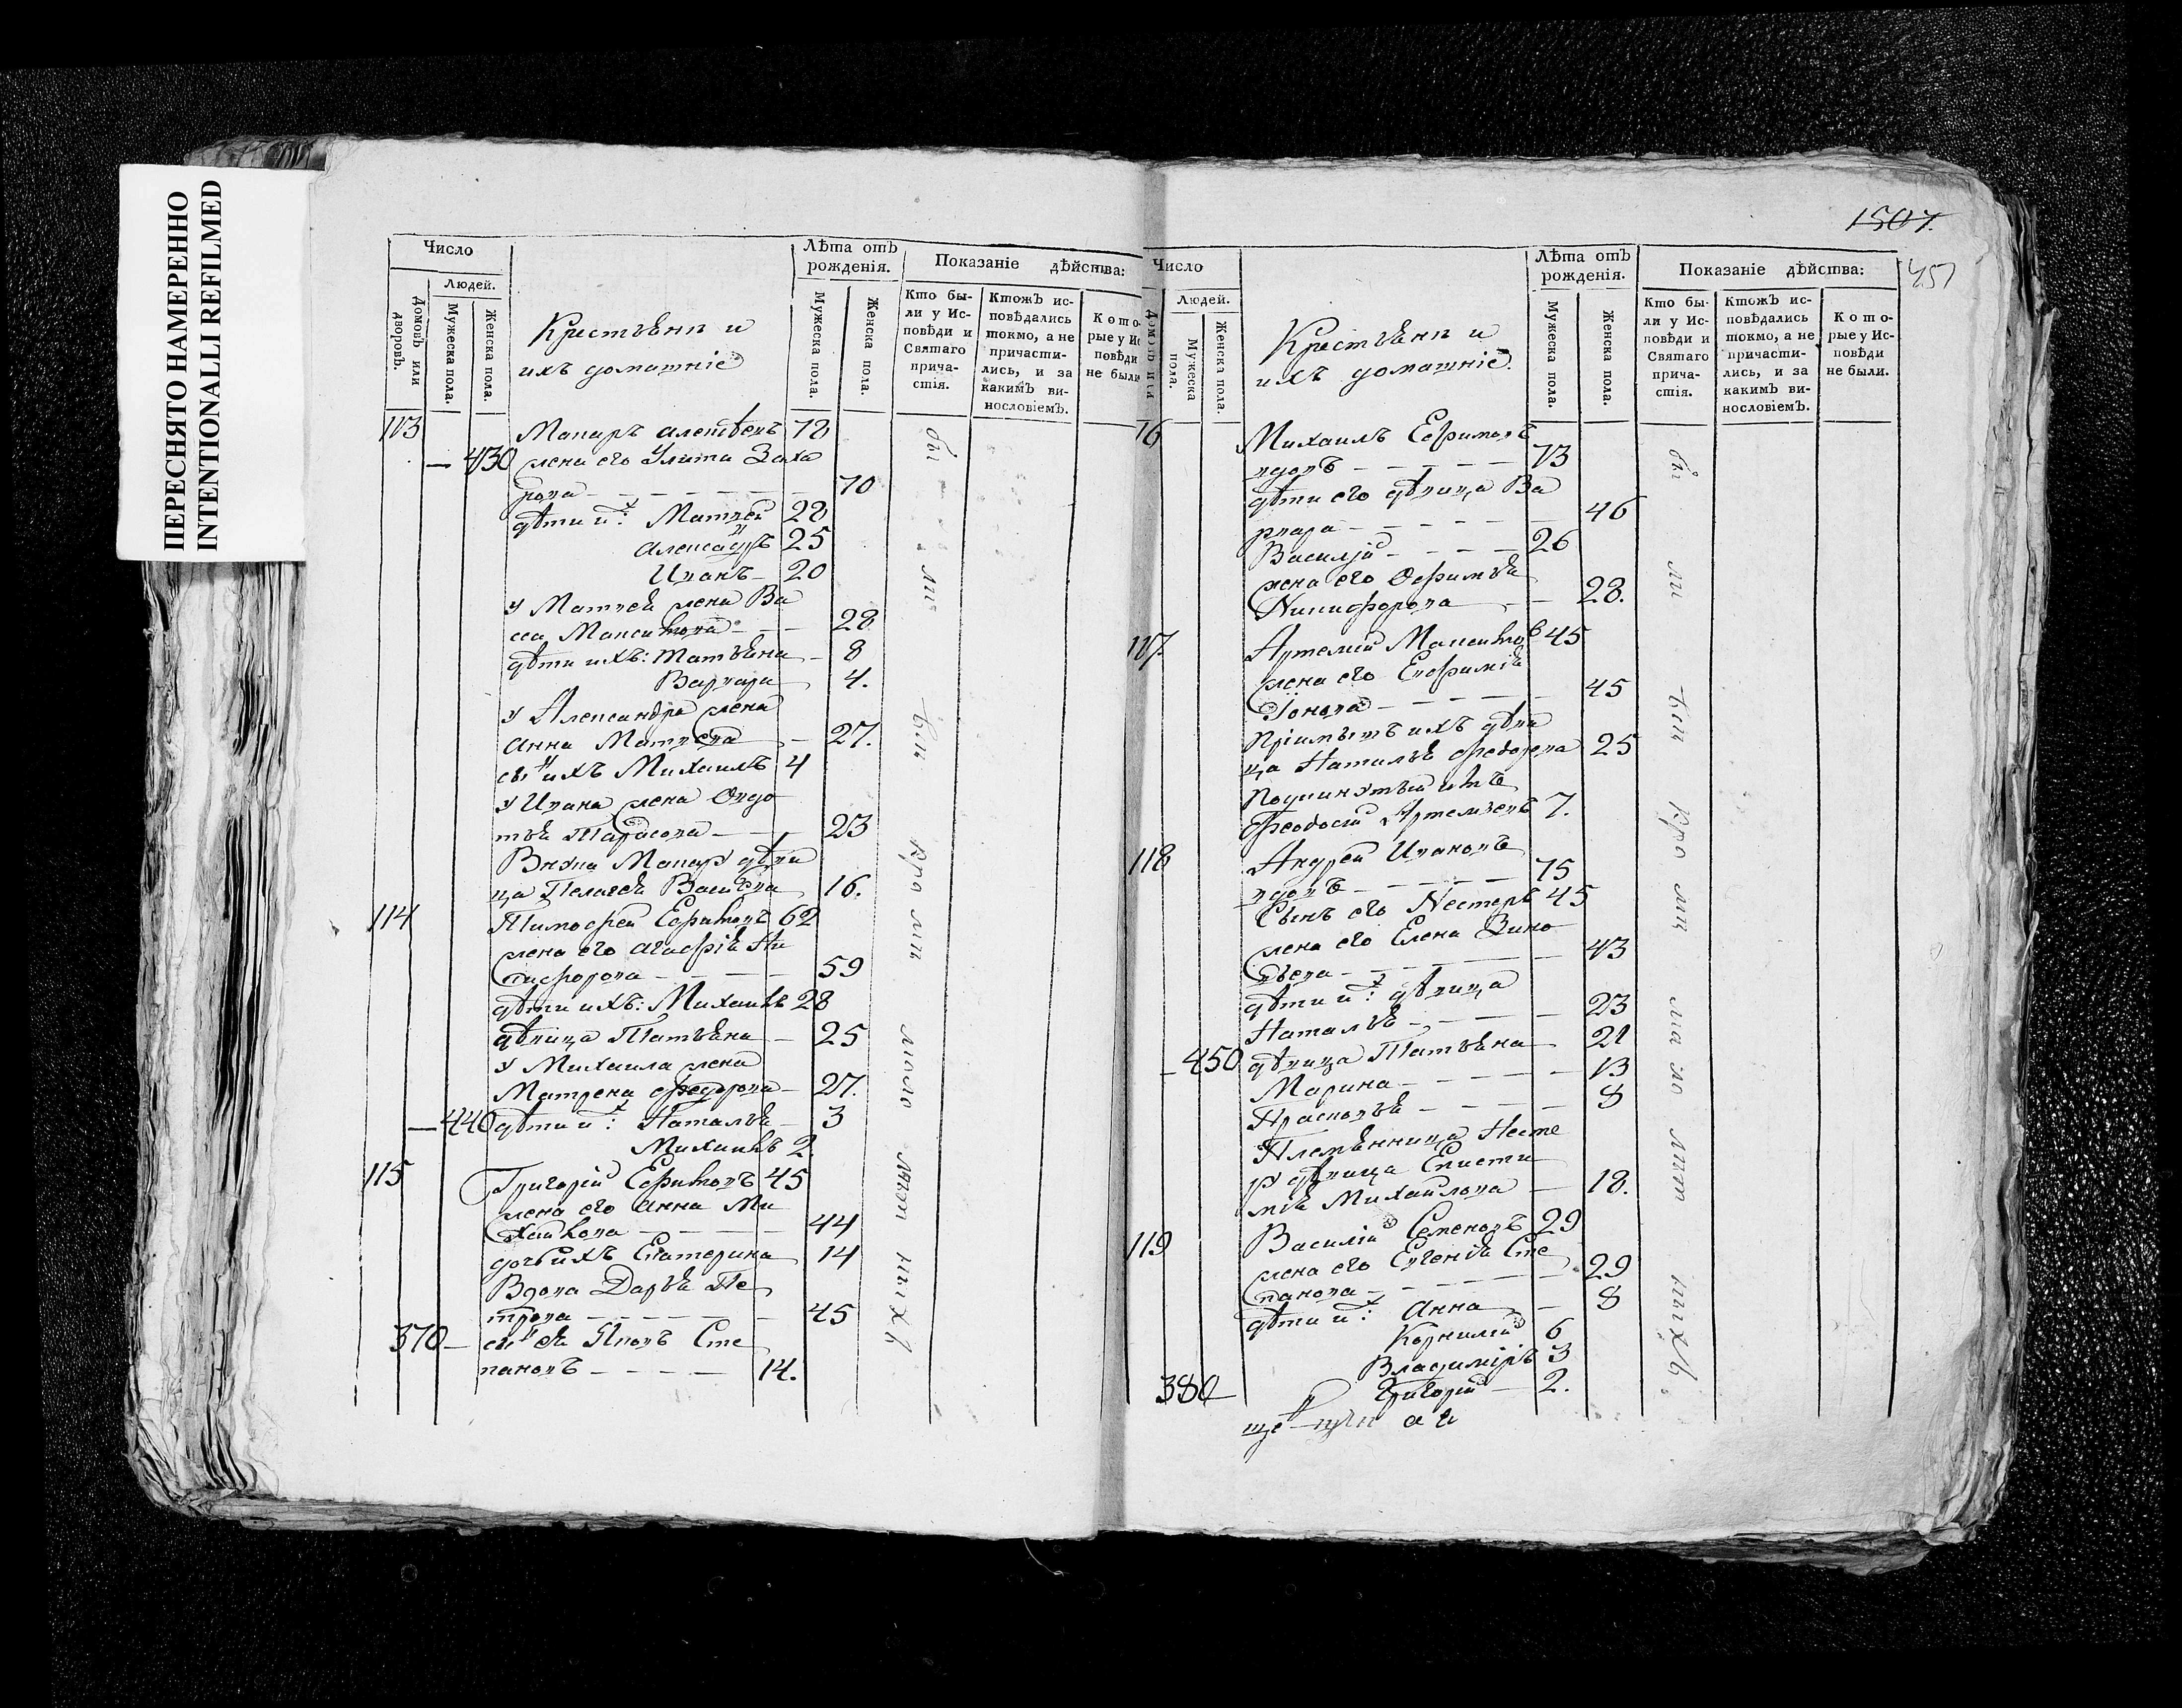 ПЕРЕСНЯТО НАМЕРЕННО
INTENTIONALLI REFILMED
Число
Людей.
Домовъ или дворовъ.
Мужеска пола.
Женска пола.
Крестьяне и
ихъ домашніе
Лѣта отъ рожденія.
Мужеска пола.
Женска пола.
Показаніе дѣйства:
Кто были у Исповѣди и Святаго причастія.
Ктожъ исповѣдались токмо, а не причастились, и за какимъ винословіемъ.
Которые у Исповѣди не были
113 Макаръ 78
— 430 жена его Улита Заха
рова — 70
дѣти их: Матвей 28
Александръ 25
Иванъ — 20
у Матвея жена Ва
сса Максимова — 28
дѣти ихъ: Татьяна — 8
Варвара 4.
у Александра жена
Анна Матвеева — 27.
сынъ ихъ Михаилъ 4
у Ивана жена Овдо
тья Тарасова — 23
Внука Макара дѣви
ца Пелагея Васильева 16.
114 Тимофей Ефимовъ 62
жена его Агафія Ни
кифорова — 59
дѣти ихъ: Михаилъ 28
дѣвица Татьяна — 25
у Михаила жена
Матрена Федорова — 27.
— 440 дѣти их: Наталья — 3
Михаилъ 2.
115 Григорій Ефимовъ 45
жена его Анна Ми
хайлова — 44
дочь ихъ Екатерина 14
Вдова Дарья Пе
трова — 45
370 — сынъ ея Яковъ Сте
пановъ — 14.
бы ли вси кро мѣ мало лѣт ныхъ
1507.
451
Число
Людей.
Домовъ или
Мужеска пола.
Женска пола.
Крестьяне и
ихъ домашніе.
Лѣта отъ рожденія.
Мужеска пола.
Женска пола.
Показаніе дѣйства:
Кто были у Исповѣди и Святаго причастія.
Ктожъ исповѣдались токмо, а не причастились, и за какимъ винословіемъ.
Которые у Исповѣди не были.
16 Михаилъ Ефимовъ
вдовъ — 73
дѣти его дѣвица Ва
рвара — 46
Василій — 26
жена его Ефимья
Никифорова — 28.
117. Артемій Максимовъ 45
жена его Евфимія
Іонова — 45
Пріимышъ ихъ дѣви
ца Наталья Федорова 25
Подкинутый имъ
Феодосій Артемьевъ 7.
118 Андрей Ивановъ
вдовъ — 75
Сынъ его Нестеръ 45
жена его Елена Зино
вьева — 43
дѣти их: дѣвица
Наталья — 23
— 450 дѣвица Татьяна — 21
Марина — 13
Прасковья — 8
Племянница Несте
ра дѣвица Евисти
мія Михайлова — 18.
119 Василій Семеновъ 29
жена его Евгенія Сте
панова — 29
дѣти их: Анна — 8
Корнилій 6
Владиміръ 3
380 — Григорій — 2.